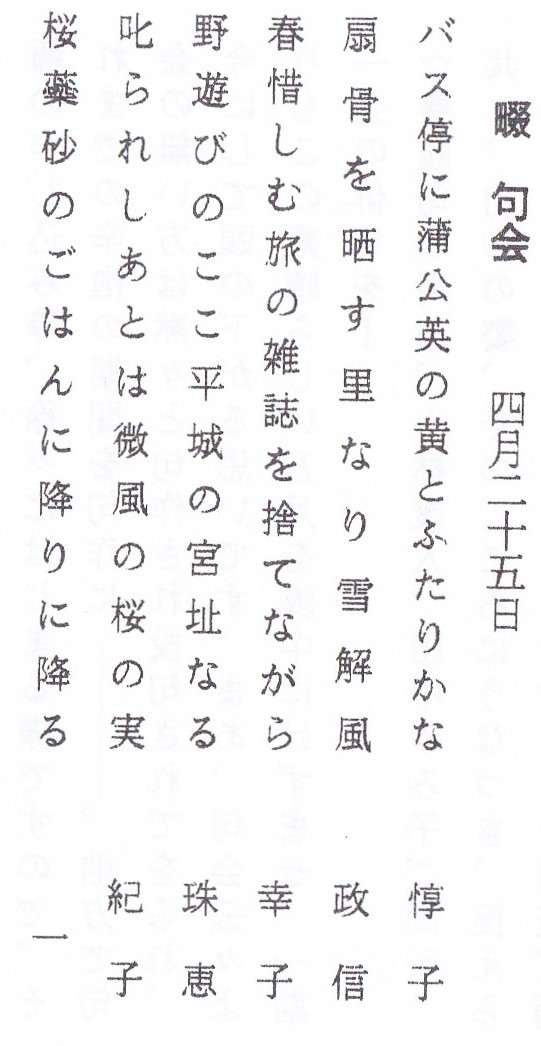 畷 句会 四月二十五日
バス停に蒲公英の黄とふたりかな 惇子
扇骨を晒す里なり雪解風 政信
春惜しむ旅の雑誌を捨てながら 幸子
野遊びのここ平城の宮址なる 珠恵
叱られしあとは微風の桜の実 紀子
桜蘂砂のごはんに降りに降る 一